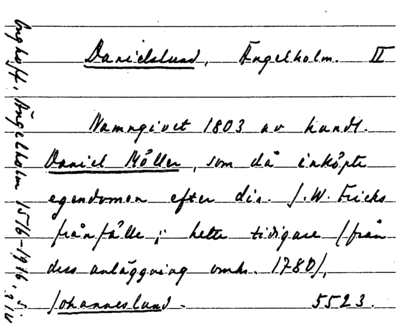 Danielslund, Ängelholm. II
Namngivet 1803 av handl.
Daniel Möller, som då inköpte
egendomen efter dir. J. W. Fricks
frånfälle; hette tidigare /från
dess anläggning omkr. 1780/,
Johanneslund. 5523.
Enghoff, Ängelholm 1516-1916, s.